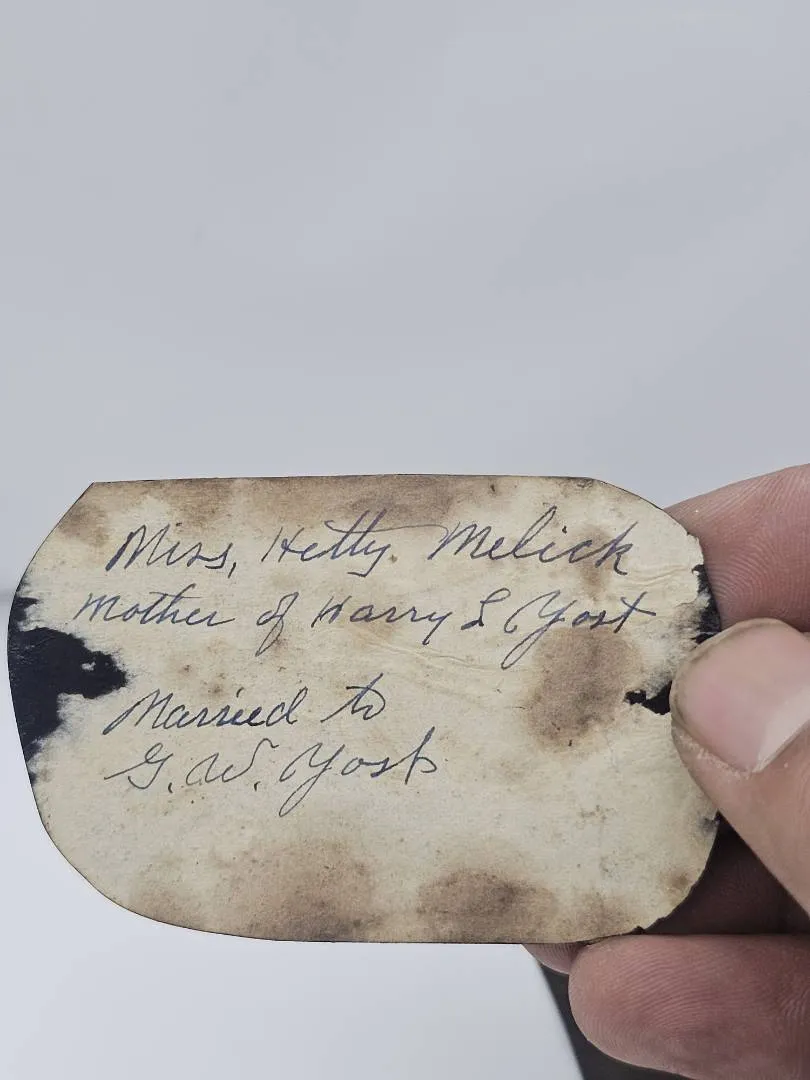 Miss, Hetty. Melick
Mother of Harry L Yost
Married to
G. W. Yost